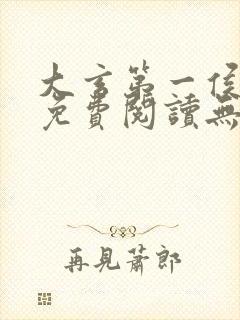 大言第一侯
免費閱讀無
再見蕭郎